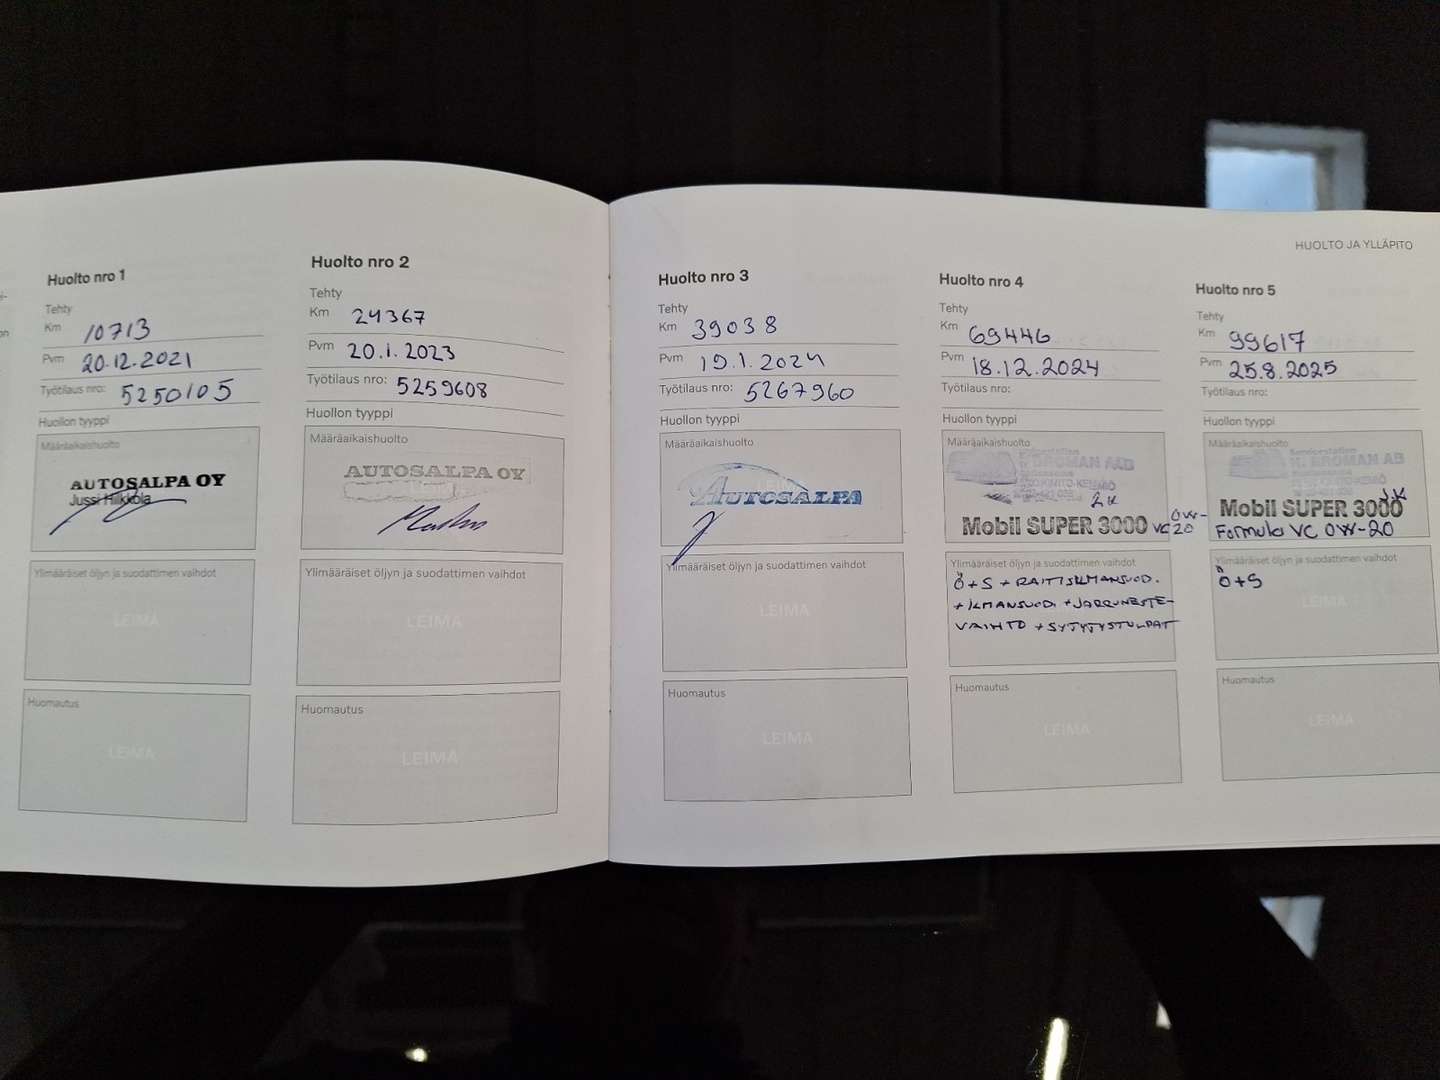 HUOLTO JA YLLÄPITO
Huolto nro 1
Tehty
Km 10713
Pvm 20.12.2021
Työtilaus nro: 5250105
Huollon tyyppi
Määräaikaishuolto
AUTOSALPA OY
Jussi Hilkkola
Ylimääräiset öljyn ja suodattimen vaihdot
LEIMA
Huomautus
LEIMA
Huolto nro 2
Tehty
Km 24367
Pvm 20.1.2023
Työtilaus nro: 5259608
Huollon tyyppi
Määräaikaishuolto
AUTOSALPA OY
LEIMA
Ylimääräiset öljyn ja suodattimen vaihdot
LEIMA
Huomautus
LEIMA
Huolto nro 3
Tehty
Km 39038
Pvm 19.1.2024
Työtilaus nro: 5267960
Huollon tyyppi
Määräaikaishuolto
LEIMA
AUTOSALPA
Ylimääräiset öljyn ja suodattimen vaihdot
LEIMA
Huomautus
LEIMA
Huolto nro 4
Tehty
Km 69446
Pvm 18.12.2024
Työtilaus nro:
Huollon tyyppi
Määräaikaishuolto
BROMAN
Mobil SUPER 3000 VC 0W-20
Ylimääräiset öljyn ja suodattimen vaihdot
Ö+S + RAITISILMANSUOD.
+ ILMANSUODI + JARRUNESTE-
VAIHTO + SYTYTYSTULPAT
Huomautus
LEIMA
Huolto nro 5
Tehty
Km 99617
Pvm 25.8.2025
Työtilaus nro:
Huollon tyyppi
Määräaikaishuolto
Servicestation
K. BROMAN AB
Mobil SUPER 3000
Formula VC 0W-20
Ylimääräiset öljyn ja suodattimen vaihdot
Ö+S
LEIMA
Huomautus
LEIMA